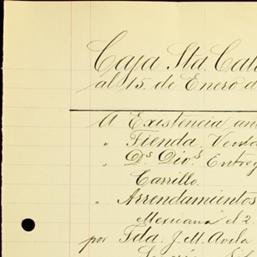 Caja Sta Cat
al 15. de Enero d
A Existencia an
" Tienda, Venta
" Ds Divs Entreg
Carrillo.
" Arrendamientos
Mexicana el 2.
por Tda. J. M. Avila